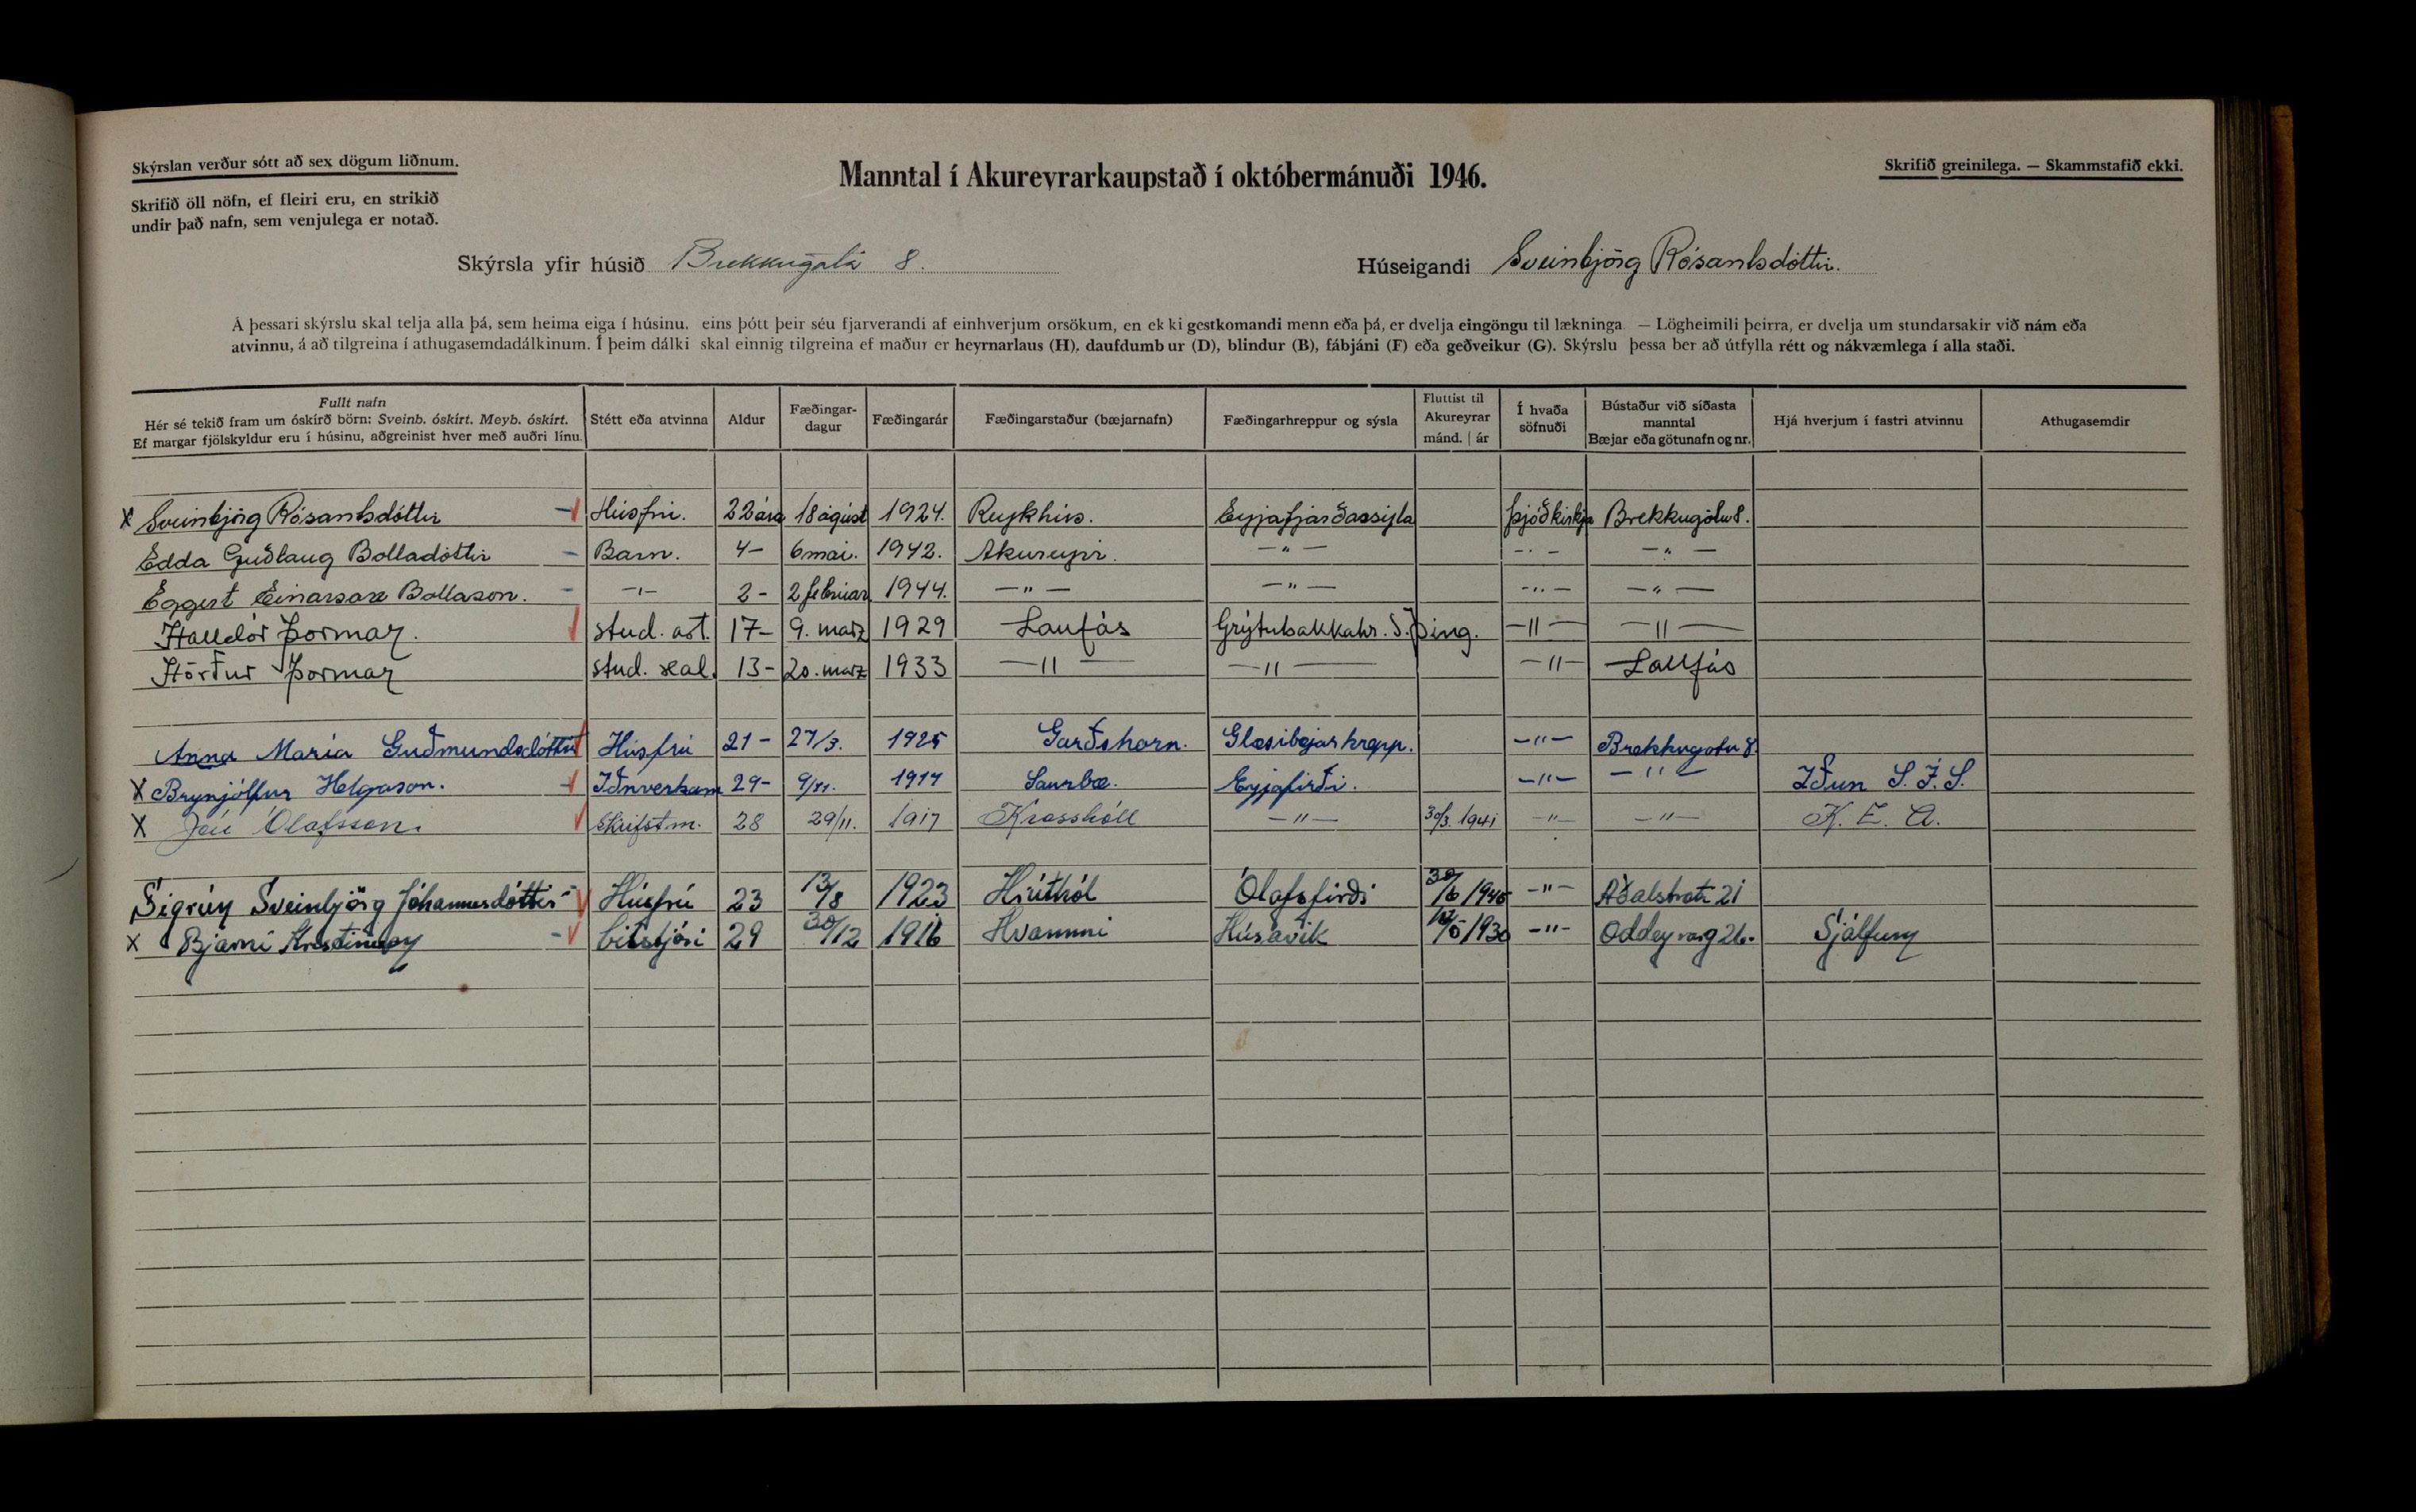 Skýrslan verður sótt að sex dögum liðnum.
Skrifið öll nöfn, ef fleiri eru, en strikið
undir það nafn, sem venjulega er notað.
Manntal í Akureyrarkaupstað í októbermánuði 1946.
Skrifið greinilega. — Skammstafið ekki.
Skýrsla yfir húsið Brekkugata 8.
Húseigandi Sveinbjörg Rósantsdóttir.
Á þessari skýrslu skal telja alla þá, sem heima eiga í húsinu, eins þótt þeir séu fjarverandi af einhverjum orsökum, en ekki gestkomandi menn eða þá, er dvelja eingöngu til lækninga. — Lögheimili þeirra, er dvelja um stundarsakir við nám eða
atvinnu, á að tilgreina í athugasemdadálkinum. Í þeim dálki skal einnig tilgreina ef maður er heyrnarlaus (H), daufdumbur (D), blindur (B), fábjáni (F) eða geðveikur (G). Skýrslu þessa ber að útfylla rétt og nákvæmlega í alla staði.
Fullt nafn
Hér sé tekið fram um óskírð börn: Sveinb. óskírt. Meyb. óskírt.
Ef margar fjölskyldur eru í húsinu, aðgreinist hver með auðri línu.
Stétt eða atvinna
Aldur
Fæðingar-
dagur
Fæðingarár
Fæðingarstaður (bæjarnafn)
Fæðingarhreppur og sýsla
Fluttist til
Akureyrar
mánd. | ár
Í hvaða
söfnuði
Bústaður við síðasta
manntal
Bæjar eða götunafn og nr.
Hjá hverjum í fastri atvinnu
Athugasemdir
X Sveinbjörg Rósantsdóttir Húsfrú. 22 ára 18 ágúst 1924. Reykhús. Eyjafjarðarsýsla þjóðkirkja Brekkugötu 8.
Edda Guðlaug Bolladóttir Barn. 4– 6 mai. 1942. Akureyri. —"— —"— —"—
Eggert Einarsson Bollason. —"— 2– 2 februar 1944. —"— —"— —"— —"—
Halldór Þormar. stud. art. 17– 9. marz 1929 Laufás Grýtubakkahr. S. Þing. —"— —"—
Hörður Þormar stud. real. 13– 20. marz 1933 —"— —"— —"— Laufás
Anna María Guðmundsdóttir Húsfrú 21– 27/3. 1925 Garðshorn. Glæsibæjarhrepp. —"— Brekkugötu 8.
X Brynjólfur Helgason. Iðnverkam 29– 9/11. 1917 Saurbæ. Eyjafirði. —"— —"— Iðun S.Í.S.
X Jón Ólafsson. Skrifstm. 28 29/11. 1917 Krosshóll —"— 30/3. 1941 —"— —"— K. E. A.
Sigrún Sveinbjörg Jóhannesdóttir Húsfrú 23 13/8 1923 Hrúthól Ólafsfirði —"— Aðalstræti 21
X Bjarni Kristinsson bílstjóri 29 30/12 1916 Hvammi Húsavík —"— Oddeyrarg 26. Sjálfum